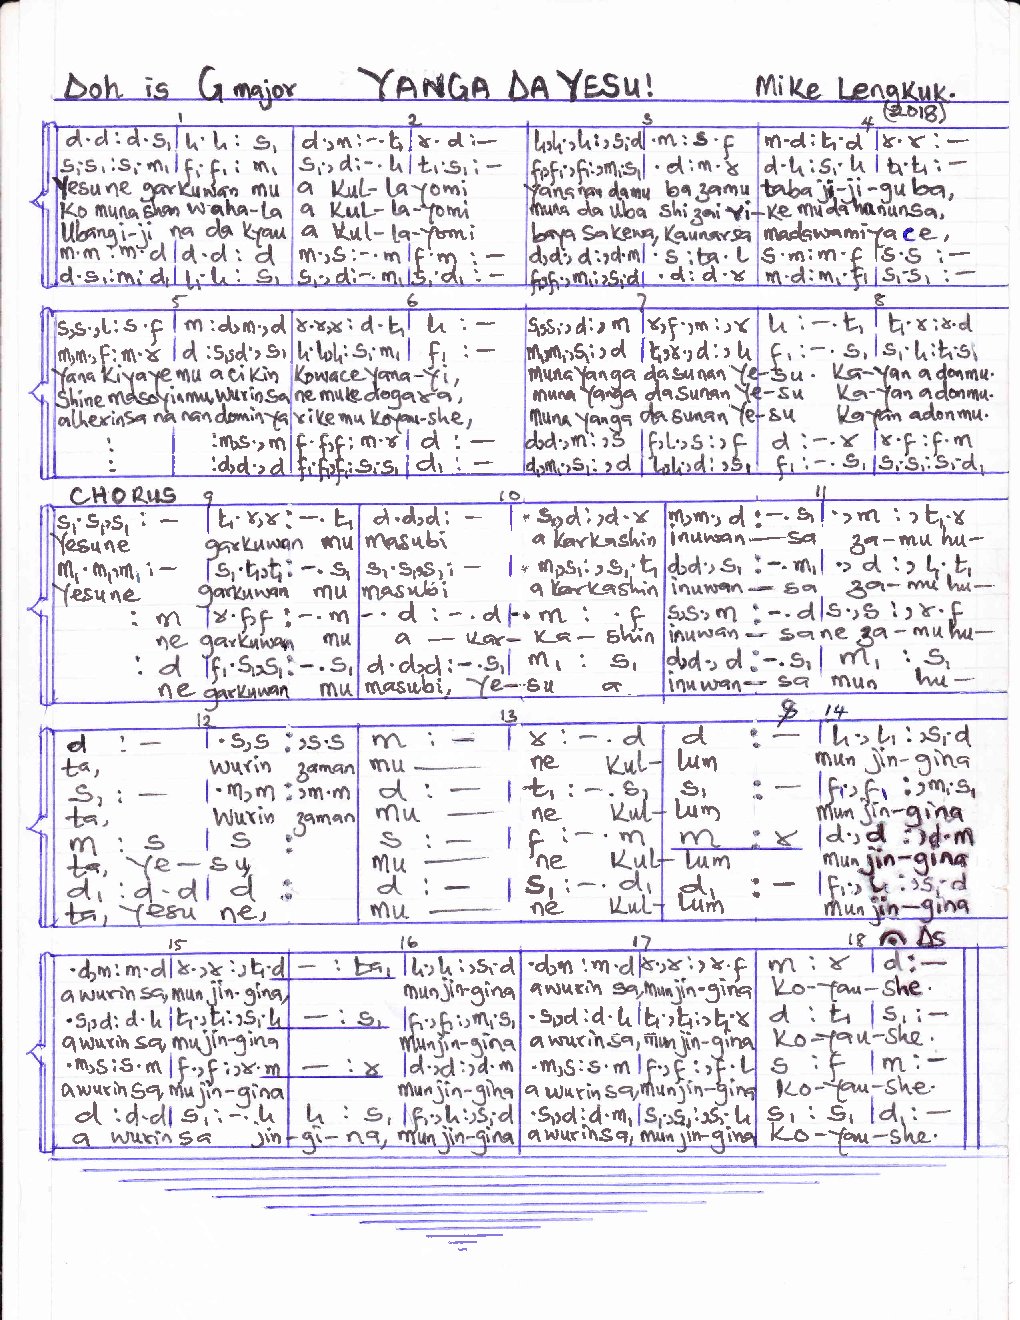 Doh is G major YANGA DA YESU! Mike Lengkuk.
(2018)
1 2 3 4
d.d:d.s₁|l₁.l₁:s₁ d.,m:-.t₁|r.d:- l₁.,l₁:s₁.d|.m:s.f m.d:t₁.d|r.r:-
s₁.s₁:s₁.m₁|f₁.f₁:m₁ s₁.,d:-.l₁|t₁.s₁:- f₁.,f₁:m₁.s₁|.d:m.r d.l₁:s₁.l₁|t₁.t₁:-
Yesu ne garkuwan mu a kul-la yomi Yanganan damu ba zamu taba ji-ji-gu ba,
Ko muna shan waha-la a kul-la-yomi muna da Uba shi zai yi-ke mu da hununsa,
Ubangi-ji na da kyau a kul-la-yomi baya sakewa, kaunarsa madawamiya ce,
m.m:m.d|d.d:d m.,s:-.m|f.m:- d.,d:d.m|.s:ta.l s.m:m.f|s.s:-
d.s₁:m₁.d₁|l₁.l₁:s₁ s₁.,d:-.m₁|s₁.d₁:- f₁.,f₁:s₁.d|.d:d.r m.d:m₁.f₁|s₁.s₁:-
5 6 7 8
s.s.,l:s.f|m:d.,m.,d r.r.,r:d.t₁|l₁:- s.s.,s:d.,m|r.,f.,m:,r l₁:-.t₁|t₁.r:r.d
m.m.,f:m.r|d:s₁.,d.,s₁ l₁.l₁.,l₁:s₁.m₁|f₁:- m.m.,s₁:,d|t₁.,r.,d:,l₁ f₁:-.s₁|s₁.l₁:t₁.s₁
Yana kiyaye mu a cikin kowace yana-yi, muna yanga da sunan Ye-su. Ka-yan adonmu.
Shine masoyinmu, wurinsa ne muke dogara, muna yanga da sunan Ye-su Ka-yan adonmu.
alherinsa na nan domin ya rike mu koyau-she, muna yanga da sunan Ye-su Kayan adonmu.
: |:m.,s.,m f.f.,f:m.r|d:- d.d.,m:,s|f.,l.,s:,f d:-.r|r.f:f.m
: |:d.,d.,d f₁.f₁.,f₁:s₁.s₁|d₁:- d.m.,s₁:,d|l₁.l₁.,d:,s₁ f₁:-.s₁|s₁.s₁:s₁.d₁
CHORUS 9 10 11
s₁.s₁.,s₁:-|t₁.r.,r:-.t₁ d.d.,d:-|.s₁.,d:,d.r m.,m.,d:-.s₁|.,m:,t₁.r
Yesu ne garkuwan mu masubi a karkashin inuwan-sa za-mu hu-
m₁.m₁.,m₁:-|s₁.t₁.,t₁:-.s₁ s₁.s₁.,s₁:-|.m₁.,s₁:,s₁.t₁ d.d.,s₁:-.m₁|.,d:,l₁.t₁
Yesu ne garkuwan mu masubi a karkashin inuwan-sa za-mu hu-
:m|r.f.,f:-.m -.d:-.d|-.m:.f s.s.,m:-.d|s.,s:,r.f
ne garkuwan mu a - kar-ka-shin inuwan-sa ne za-mu hu-
:d|f₁.s₁.,s₁:-.s₁ d.d.,d:-.s₁|m₁:s₁ d.d.,d:-.s₁|m₁:s₁
ne garkuwan mu masubi, Ye-su a inuwan-sa mun hu-
12 13 14
d:-|.s.,s:,s.s m:-|r:-.d d:-|l₁.,l₁:,s₁.d
ta, wurin zaman mu ne kul-lum mun jin-gina
s₁:-|.m.,m:,m.m d:-|t₁:-.s₁ s₁:-|f₁.,f₁:,m₁.s₁
ta, wurin zaman mu ne kul-lum mun jin-gina
m:s|s: s:-|f:-.m m:r|d.,d:,d.m
ta, Ye-su, mu ne kul-lum mun jin-gina
d₁:d.d|d: d:-|s₁:-.d₁ d₁:-|f₁.,l₁:,s₁.d
ta, Yesu ne, mu ne kul-lum mun jin-gina
15 16 17 18 DS
.d.,m:m.d|r.,r:,t₁.d -:ta₁|l₁.,l₁:,s₁.d .d.,m:m.d|r.,r:,r.f m:r|d:-
a wurin sa, mun jin-gina, mun jin-gina a wurin sa, mun jin-gina Ko-yau-she.
.s₁.,d:d.l₁|t₁.,t₁:,s₁.l₁ -:s₁|f₁.,f₁:,m₁.s₁ .s₁.,d:d.l₁|t₁.,t₁:,t₁.r d:t₁|s₁:-
a wurin sa, mu jin-gina mun jin-gina a wurin sa, mun jin-gina Ko-yau-she.
.m.,s:s.m|f.,f:,r.m -:r|d.,d:,d.m .m.,s:s.m|f.,f:,f.l s:f|m:-
a wurin sa, mu jin-gina mun jin-gina a wurin sa, mun jin-gina Ko-yau-she.
d:d.d|s₁:-.l₁ l₁:s₁|f₁.,l₁:,s₁.d .s₁.,d:d.m₁|s₁.,s₁:,s₁.l₁ s₁:s₁|d₁:-
a wurin sa jin-gi-na, mun jin-gina a wurin sa, mun jin-gina Ko-yau-she.